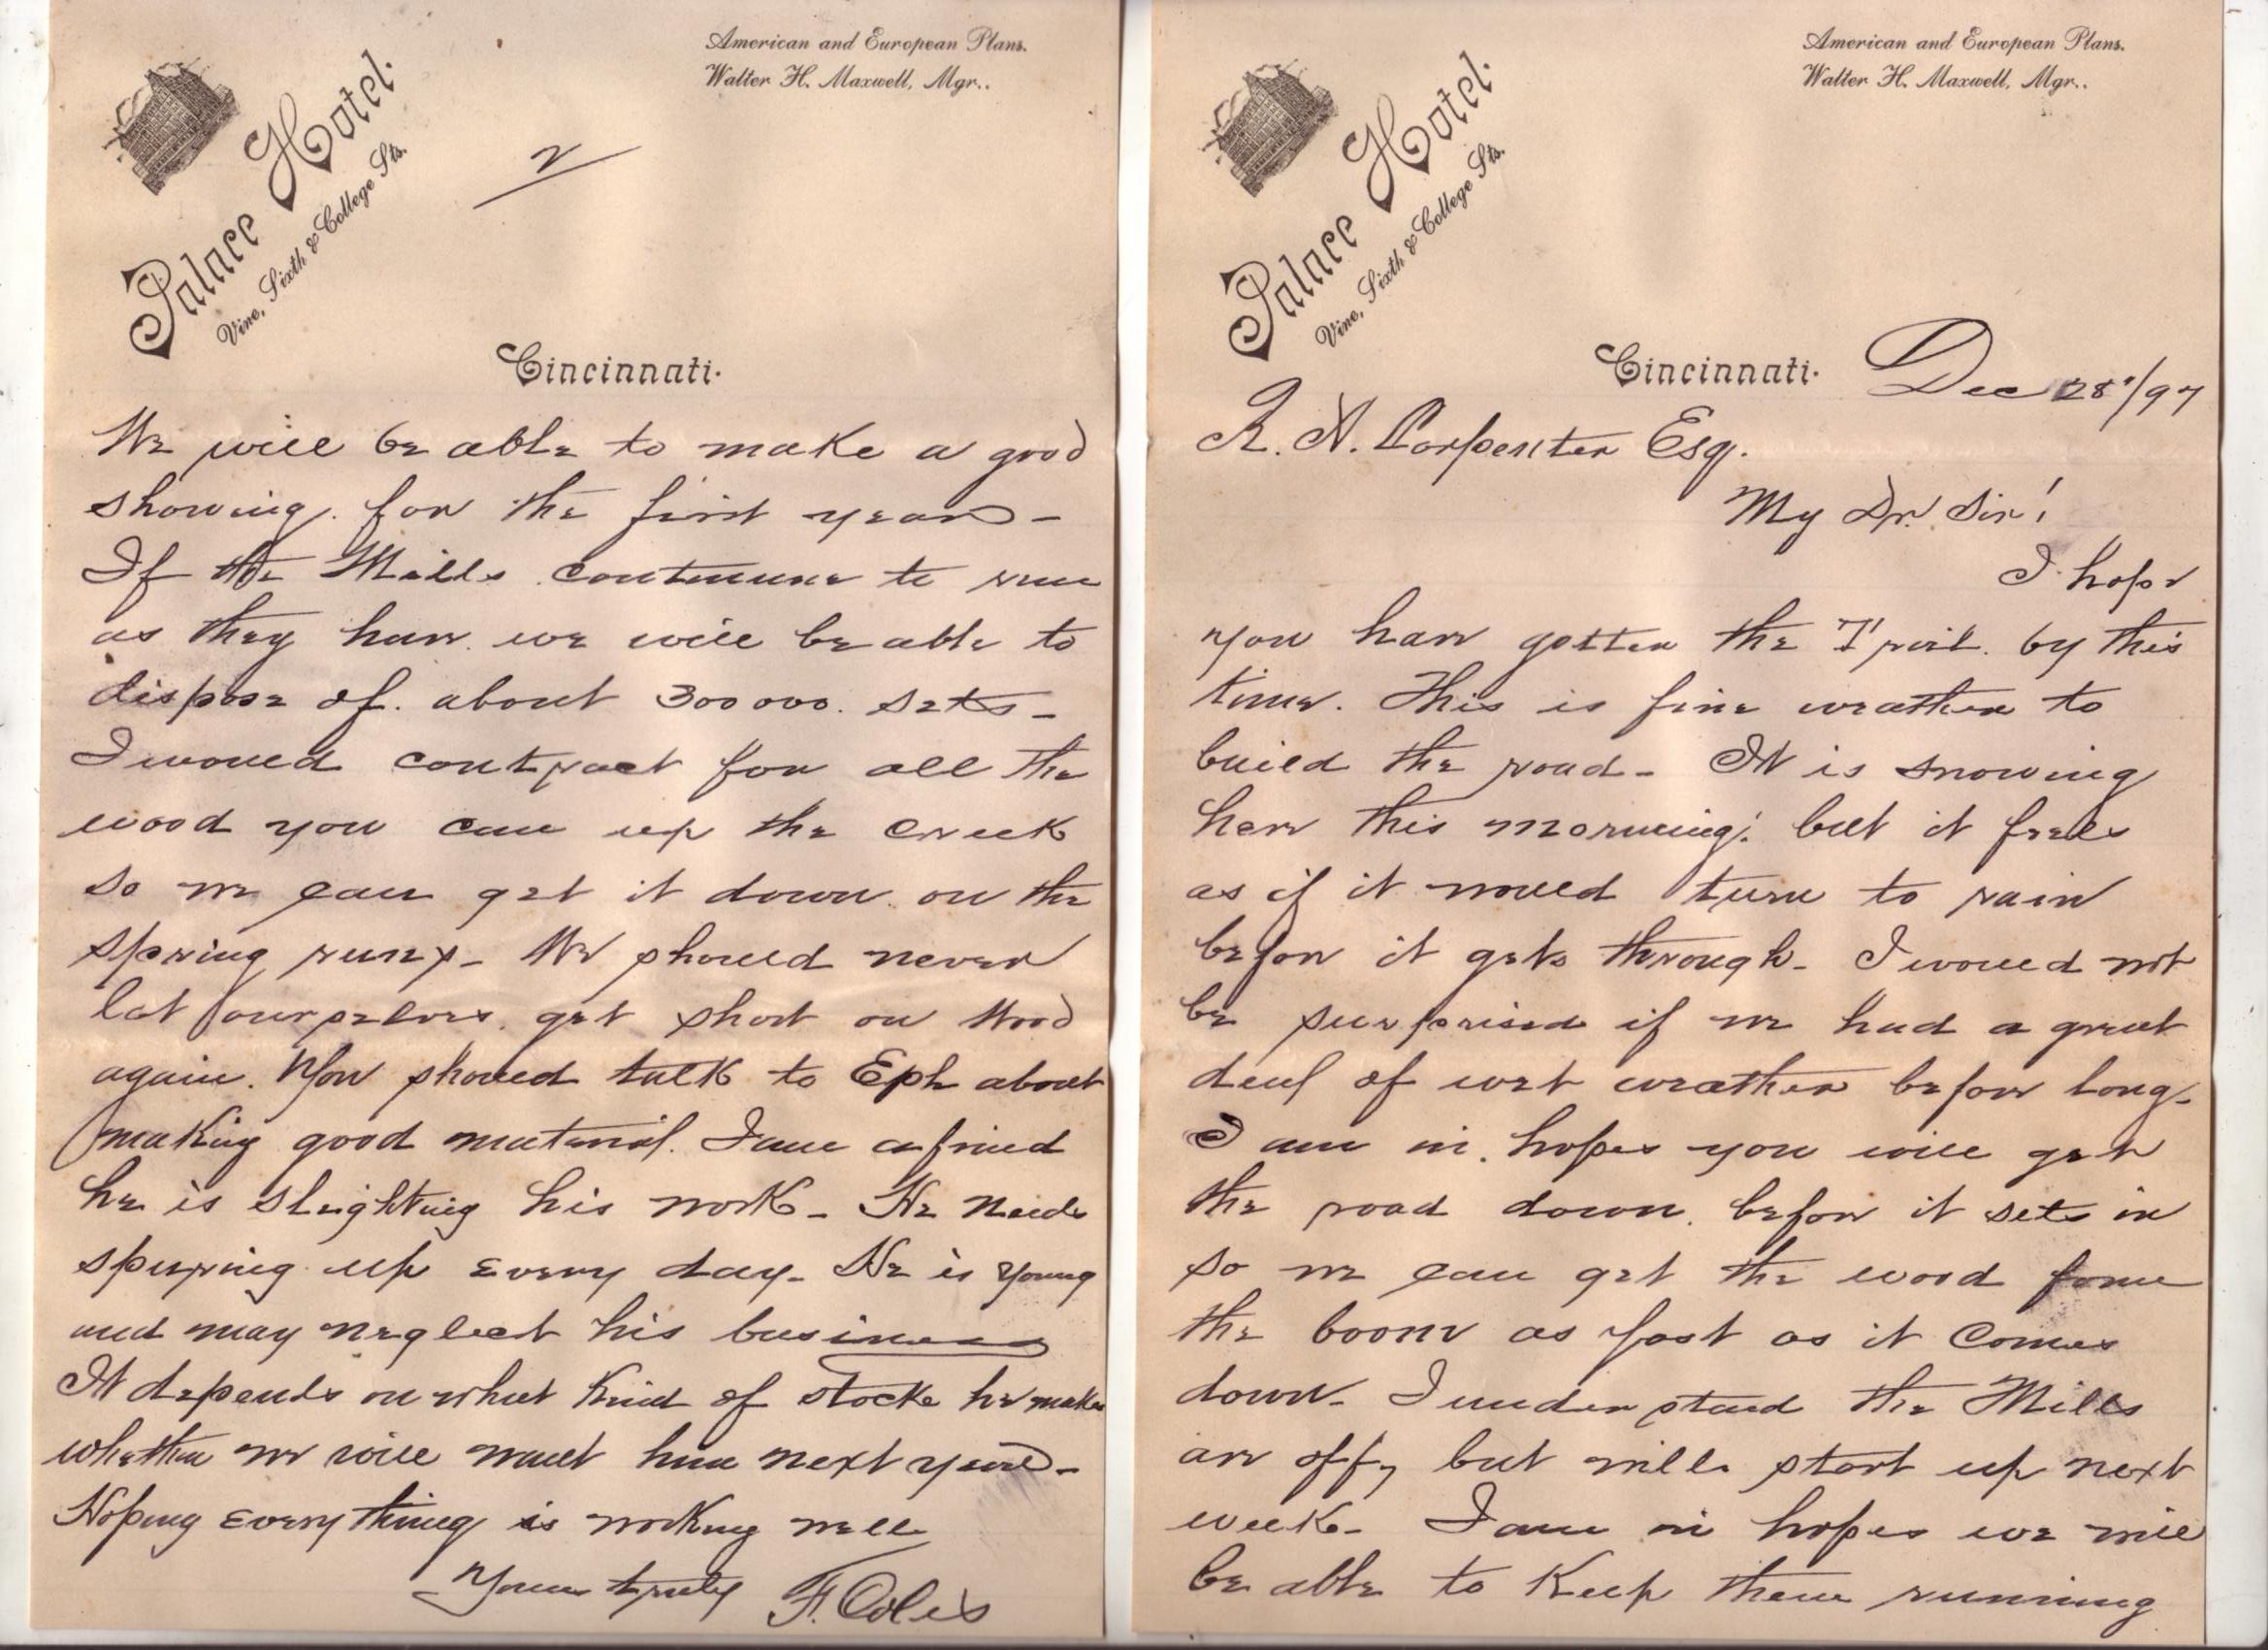 American and European Plans.
Walter H. Maxwell, Mgr..
Palace Hotel.
Vine, Sixth & College Sts.
Cincinnati.
Dec 28"/97
R. A. Carpenter Esq.
My Dr. Sir!
I hope
you have gotten the T rail by this
time. This is fine weather to
build the road - It is snowing
here this morning; but it feels
as if it would turn to rain
before it gets through - I would not
be surprised if we had a great
deal of wet weather before long -
I am in hopes you will get
the road down before it sets in
so we can get the wood from
the boom as fast as it comes
down - I understand the Mills
are off, but will start up next
week - I am in hopes we will
be able to keep them running
American and European Plans.
Walter H. Maxwell, Mgr..
Palace Hotel.
Vine, Sixth & College Sts.
2
Cincinnati.
We will be able to make a good
showing for the first year -
If the Mills continue to run
as they have we will be able to
dispose of about 300000. sets -
I would contract for all the
wood you can up the creek
so we can get it down on the
spring runs - We should never
let ourselves get short on wood
again. You should talk to Eph about
making good material. I am afraid
he is slighting his work - He needs
spurring up every day - He is young
and may neglect his business
It depends on what kind of stock he makes
whether we will want him next year -
Hoping everything is working well
Yours truly F. Coles